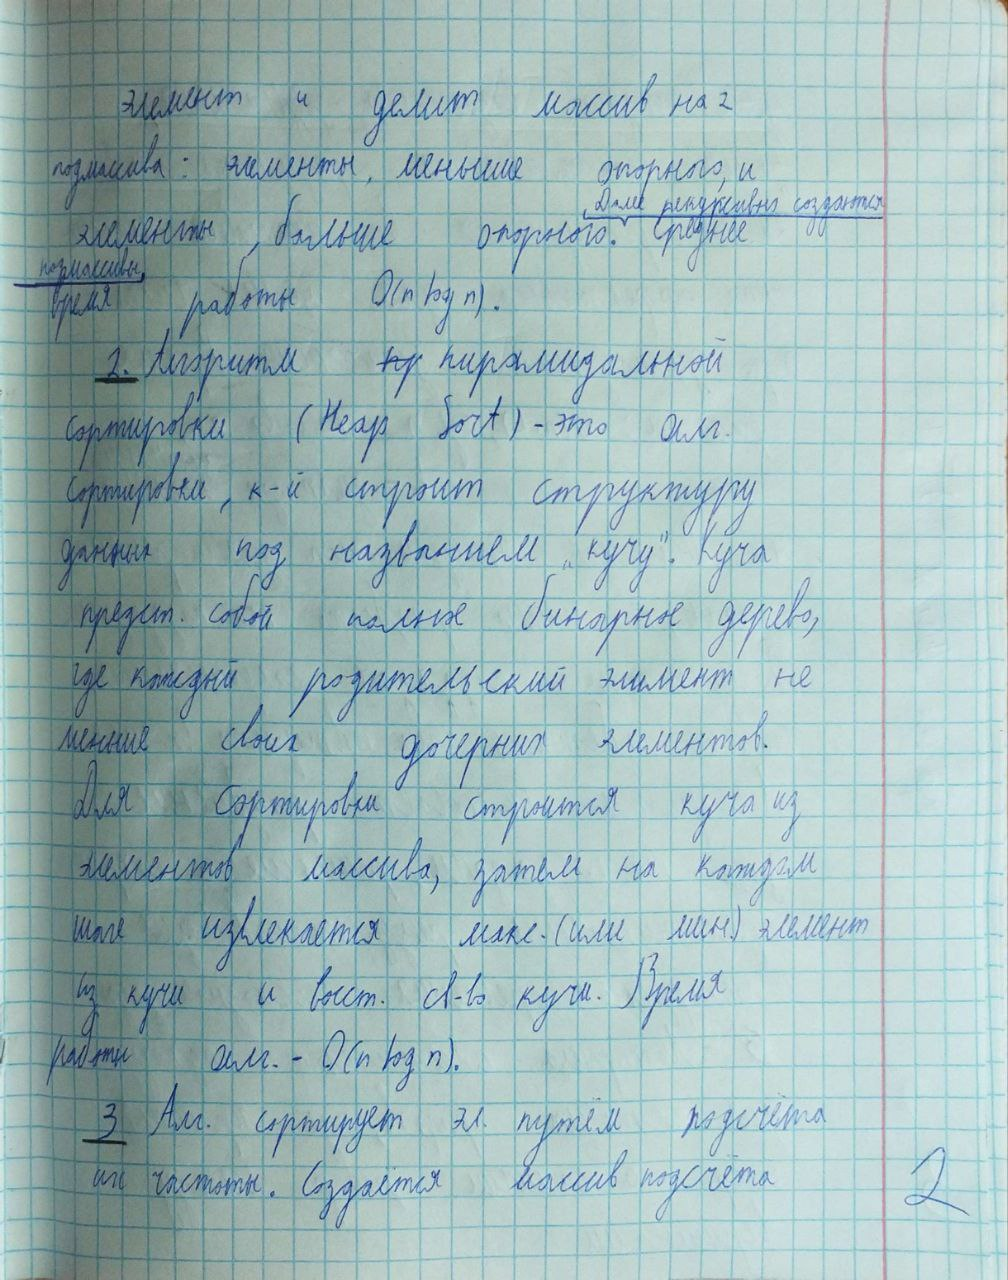 элемент и делит массив на 2
подмассива: элементы, меньшие опорного, и
Далее рекурсивно создаются
элементы, больше опорного. Среднее
подмассивы,
время работы O(n log n).
2. Алгоритм пр пирамидальной
сортировки (Heap Sort) - это алг.
сортировки, к-й строит структуру
данных под названием „кучу". Куча
предст. собой полное бинарное дерево,
где каждый родительский элимент не
меньше своих дочерних элементов.
Для сортировки строится куча из
элементов массива, затем на каждом
шаге извлекается макс. (или мин) элемент
из кучи и восст. св-во кучи. Время
работы алг. - O(n log n).
3 Алг. сортирует эл. путём подсчёта
их частоты. Создаётся массив подсчёта
2